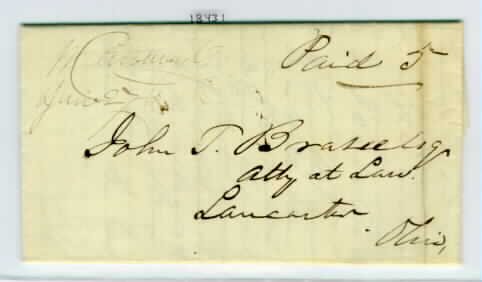 18431
Paid 5
June
John T. Brasee Esq
Atty at Law.
Lancaster
Ohio,